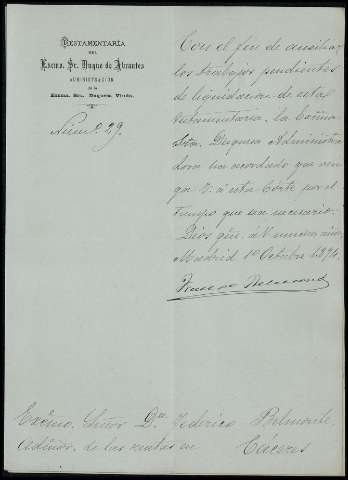 TESTAMENTARÍA
DEL
Excmo. Sr. Duque de Abrantes
ADMINISTRACION
DE LA
Excma. Sra. Duquesa Viuda.
Núm.º 29.
Con el fin de auxiliar
los trabajos pendientes
de liquidacion de esta
testamentaría, la Excma.
Sra. Duquesa Administra-
dora ha acordado que ven-
ga V. á esta Corte por el
tiempo que sea necesario.
Dios gũe. á V. muchos años
Madrid 1º Octubre 1874.
Excmo. Señor Dn. Federico Belmonte,
Admor. de las rentas en Cáceres